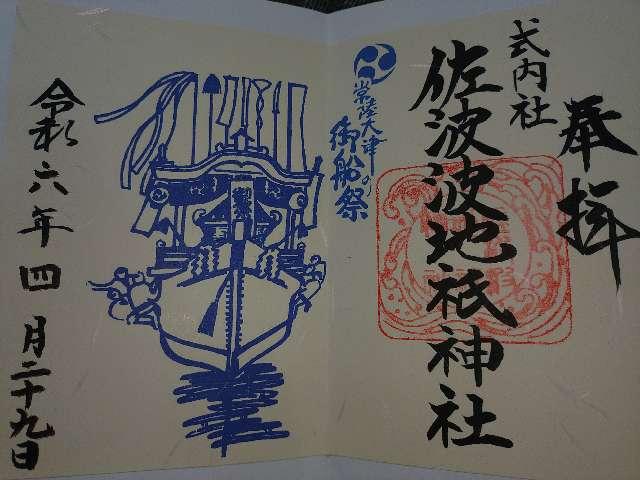 奉拝
式内社
佐波波地祇神社
常陸大津の
御船祭
令和六年四月二十九日